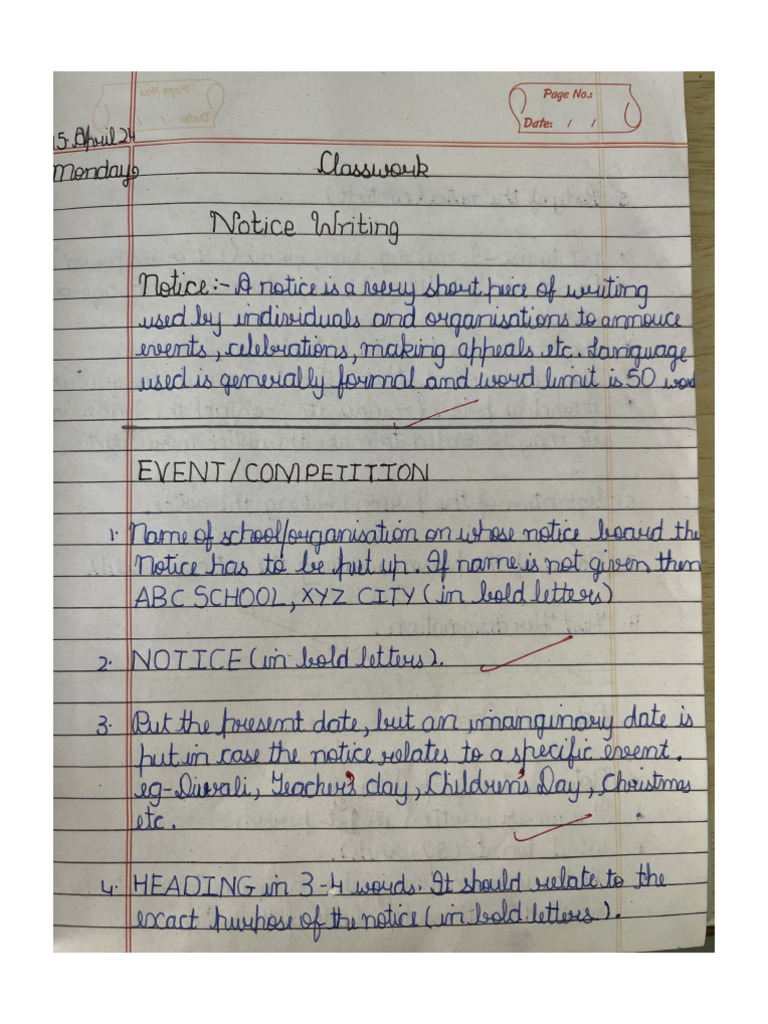 Page No.:
Date: / /
15. April 24
Monday
Classwork
Notice Writing
Notice:- A notice is a very short piece of writing
used by individuals and organisations to annouce
events, celebrations, making appeals etc. Language
used is generally formal and word limit is 50 word
EVENT/COMPETITION
1. Name of school/organisation on whose notice board the
Notice has to be put up. If name is not given then
ABC SCHOOL, XYZ CITY (in bold letters)
2. NOTICE (in bold letters).
3. Put the present date, but an imanginary date is
put in case the notice relates to a specific event.
eg-Diwali, Teacher's day, Children's Day, Christmas
etc.
4. HEADING in 3-4 words. It should relate to the
exact purpose of the notice (in bold letters).